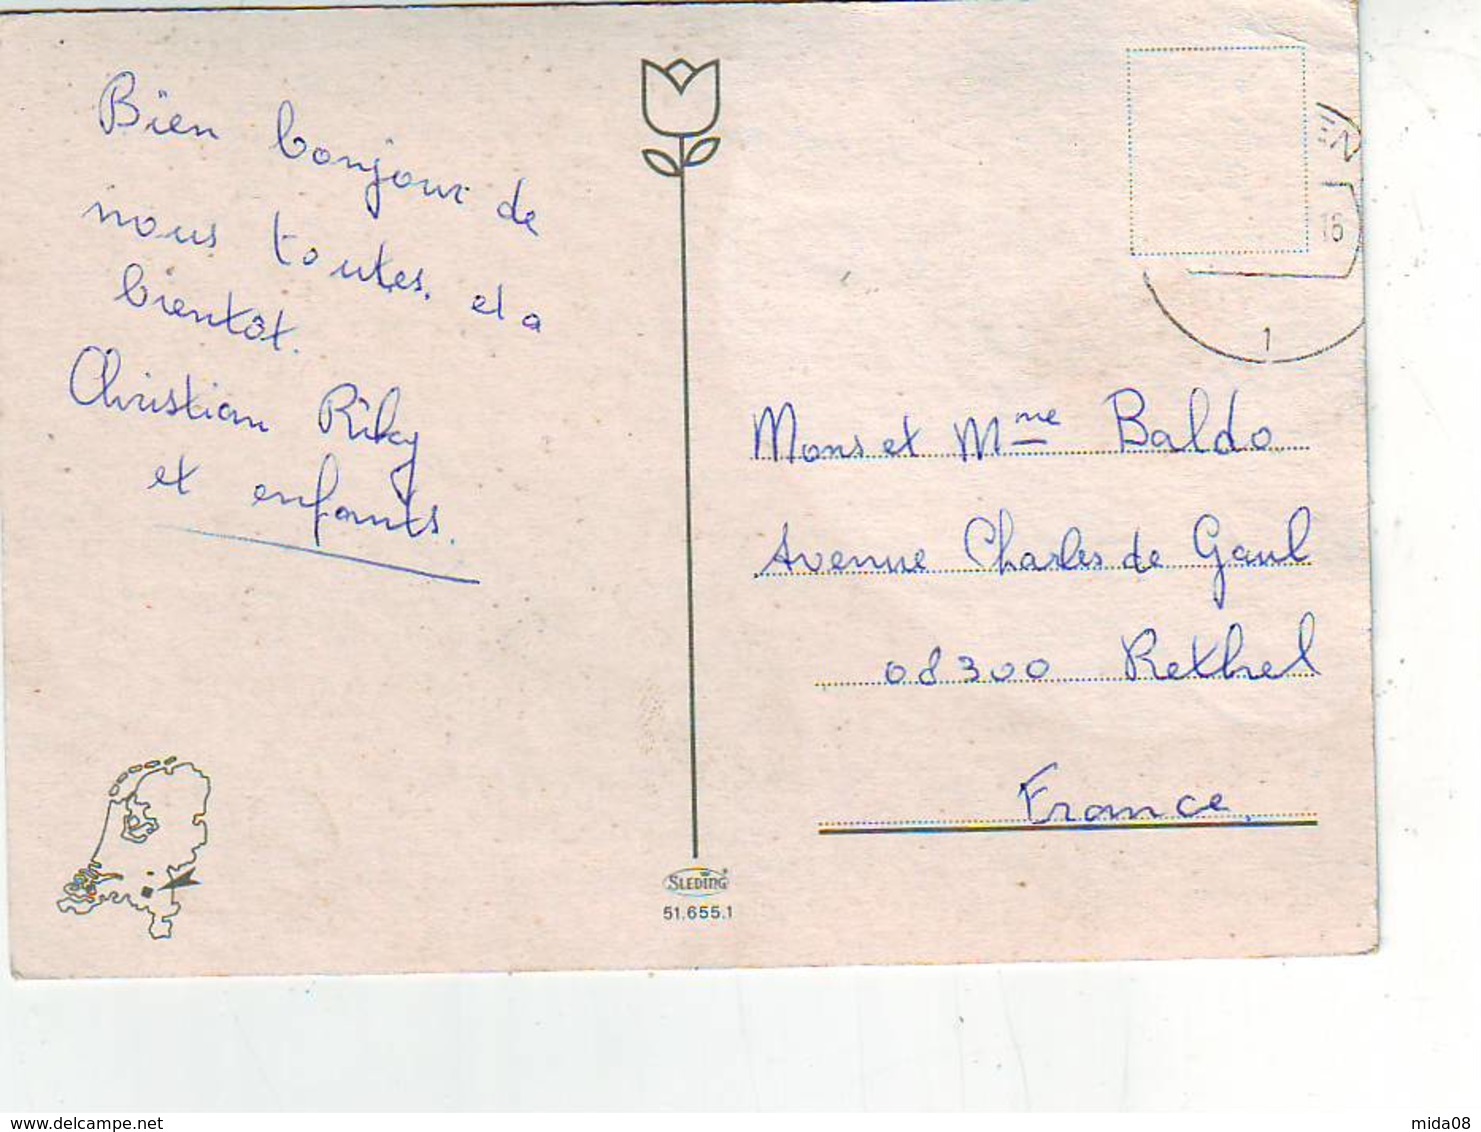 Bien bonjour de
nous toutes. et a
bientôt.
Christian Riky
et enfants.
EN
16
1
Mons et Mme Baldo
Avenue Charles de Gaul
08300 Rethel
France.
SLEDING
51.655.1
www.delcampe.net
mida08